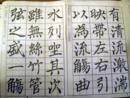 有清流激湍
映帶左右引
以為流觴曲
水列坐其次
雖無絲竹管
弦之盛一觴